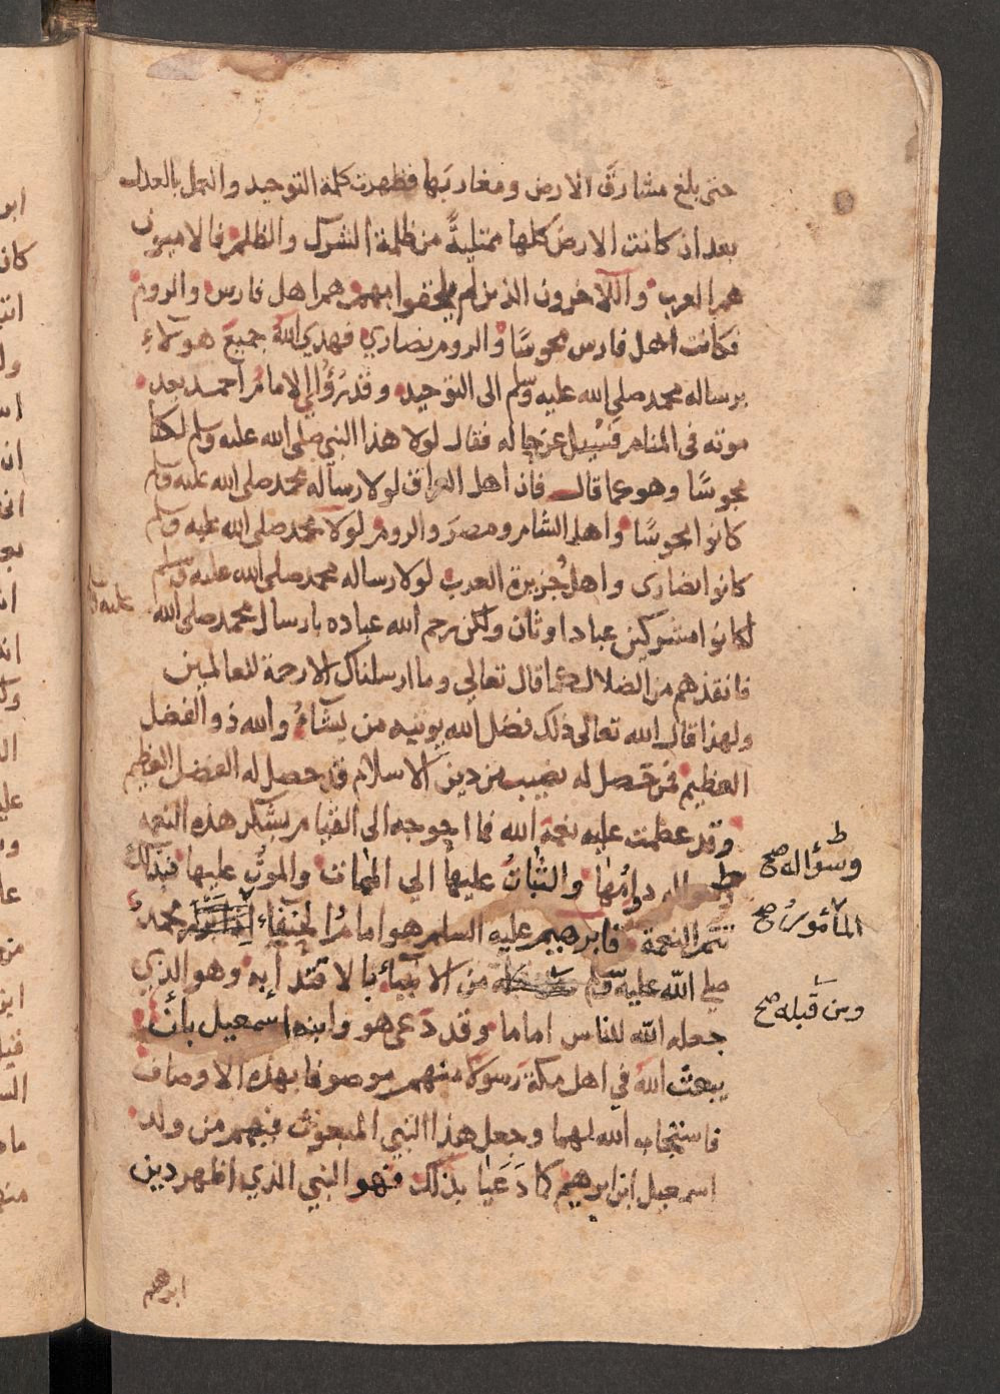 حتى بلغ مشارق الارض ومغاربها فظهرت كلمة التوحيد والعمل بالعدل
بعد ان كانت الارض كلها ممتلية من ظلمة الشرك والظلم فالاميون
هم العرب والاخرون الذين لم يلحقوا بهم هم اهل فارس والروم
فكانت اهل فارس مجوسا والروم نصاري فهدي الله جميع هولاء
برساله محمد صلى الله عليه وسلم الى التوحيد وقد رؤي الامام احمد بعد
موته فى المنام فسيل عن حاله فقال لولا هذا النبي صلى الله عليه وسلم لكنا
مجوسا وهو كما قال فان اهل العراق لولا رساله محمد صلى الله عليه وسلم
كانوا مجوسا واهل الشام ومصر والروم لولا محمد صلى الله عليه وسلم
كانوا نصارى واهل جزيرة العرب لولا رساله محمد صلى الله عليه وسلم
لكانوا مشركين عباد اوثان ولكن رحم الله عباده بارسال محمد صلى الله
عليه
فانقذهم من الضلال كما قال تعالي وما ارسلناك الا رحمة للعالمين
ولهذا قال الله تعالى ذلك فضل الله يوتيه من يشاء والله ذو الفضل
العظيم فمن حصل له نصيب من دين الاسلام فقد حصل له الفضل العظيم
وقد عظمت عليه نعمة الله فما احوجه الى القيام بشكر هذه النعمه
وسؤاله صح
دوامها والثبات عليها الي الممات والموت عليها فبذلك
تتم النعمة فابرهيم عليه السلم هو امام الحنفاء محمد
المأمور صح
صلي الله عليه وسلم من الانبياء بالاقتداء به وهو الذي
ومن قبله صح
جعله الله للناس اماما وقد دعى هو وابنه اسمعيل بأن
يبعث الله في اهل مكة رسولا منهم موصوفا بهذه الاوصاف
فاستجاب الله لهما وجعل هذا النبي المبعوث فيهم من ولد
اسمعيل ابن ابرهيم كما دعيا بذلك فهو النبي الذي اظهر دين
ابرهيم